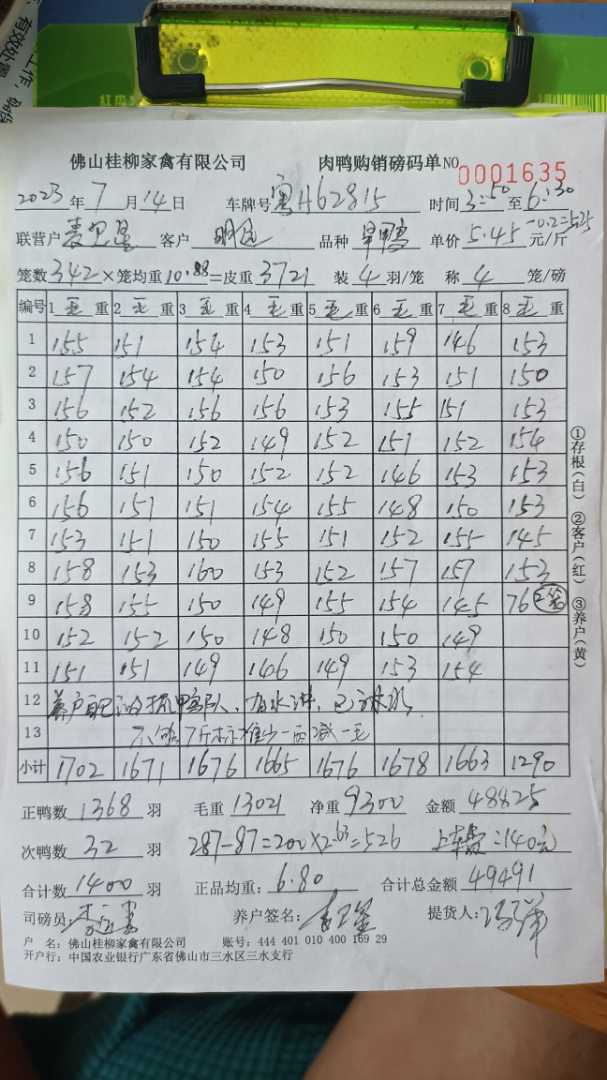 佛山桂柳家禽有限公司 肉鸭购销磅码单 NO 0001635
2023年7月14日 车牌号 粤H62815 时间3:50至6:30
联营户 客户 品种 旱鸭 单价5.45元/斤 -0.2=5.25
笼数342×笼均重10.88=皮重3721 装4羽/笼 称4笼/磅
编号 1毛重 2毛重 3毛重 4毛重 5毛重 6毛重 7毛重 8毛重
1 155 151 154 153 151 159 146 153
2 157 154 154 150 156 153 151 150
3 156 152 156 156 153 155 151 153
4 150 150 152 149 152 151 152 154
5 156 151 150 152 152 146 153 153
6 156 151 151 154 155 148 150 153
7 153 151 150 155 151 152 155 145
8 158 153 160 153 152 157 157 153
9 158 155 150 149 155 154 145 76 2笼
10 152 152 150 148 150 150 149
11 151 151 149 146 149 153 154
12 养户自己 抓鸭队,
13 不够7斤标准少一两减一毛
小计 1702 1671 1676 1665 1676 1678 1663 1290
正鸭数1368羽 毛重13021 净重9300 金额48825
次鸭数32羽 287-87=200×2.63=526 上车费=140元
合计数1400羽 正品均重:6.80 合计总金额49491
司磅员: 养户签名: 提货人:
户 名:佛山桂柳家禽有限公司 账号:444 401 010 400 169 29
开户行:中国农业银行广东省佛山市三水区三水支行
①存根(白) ②客户(红) ③养户(黄)